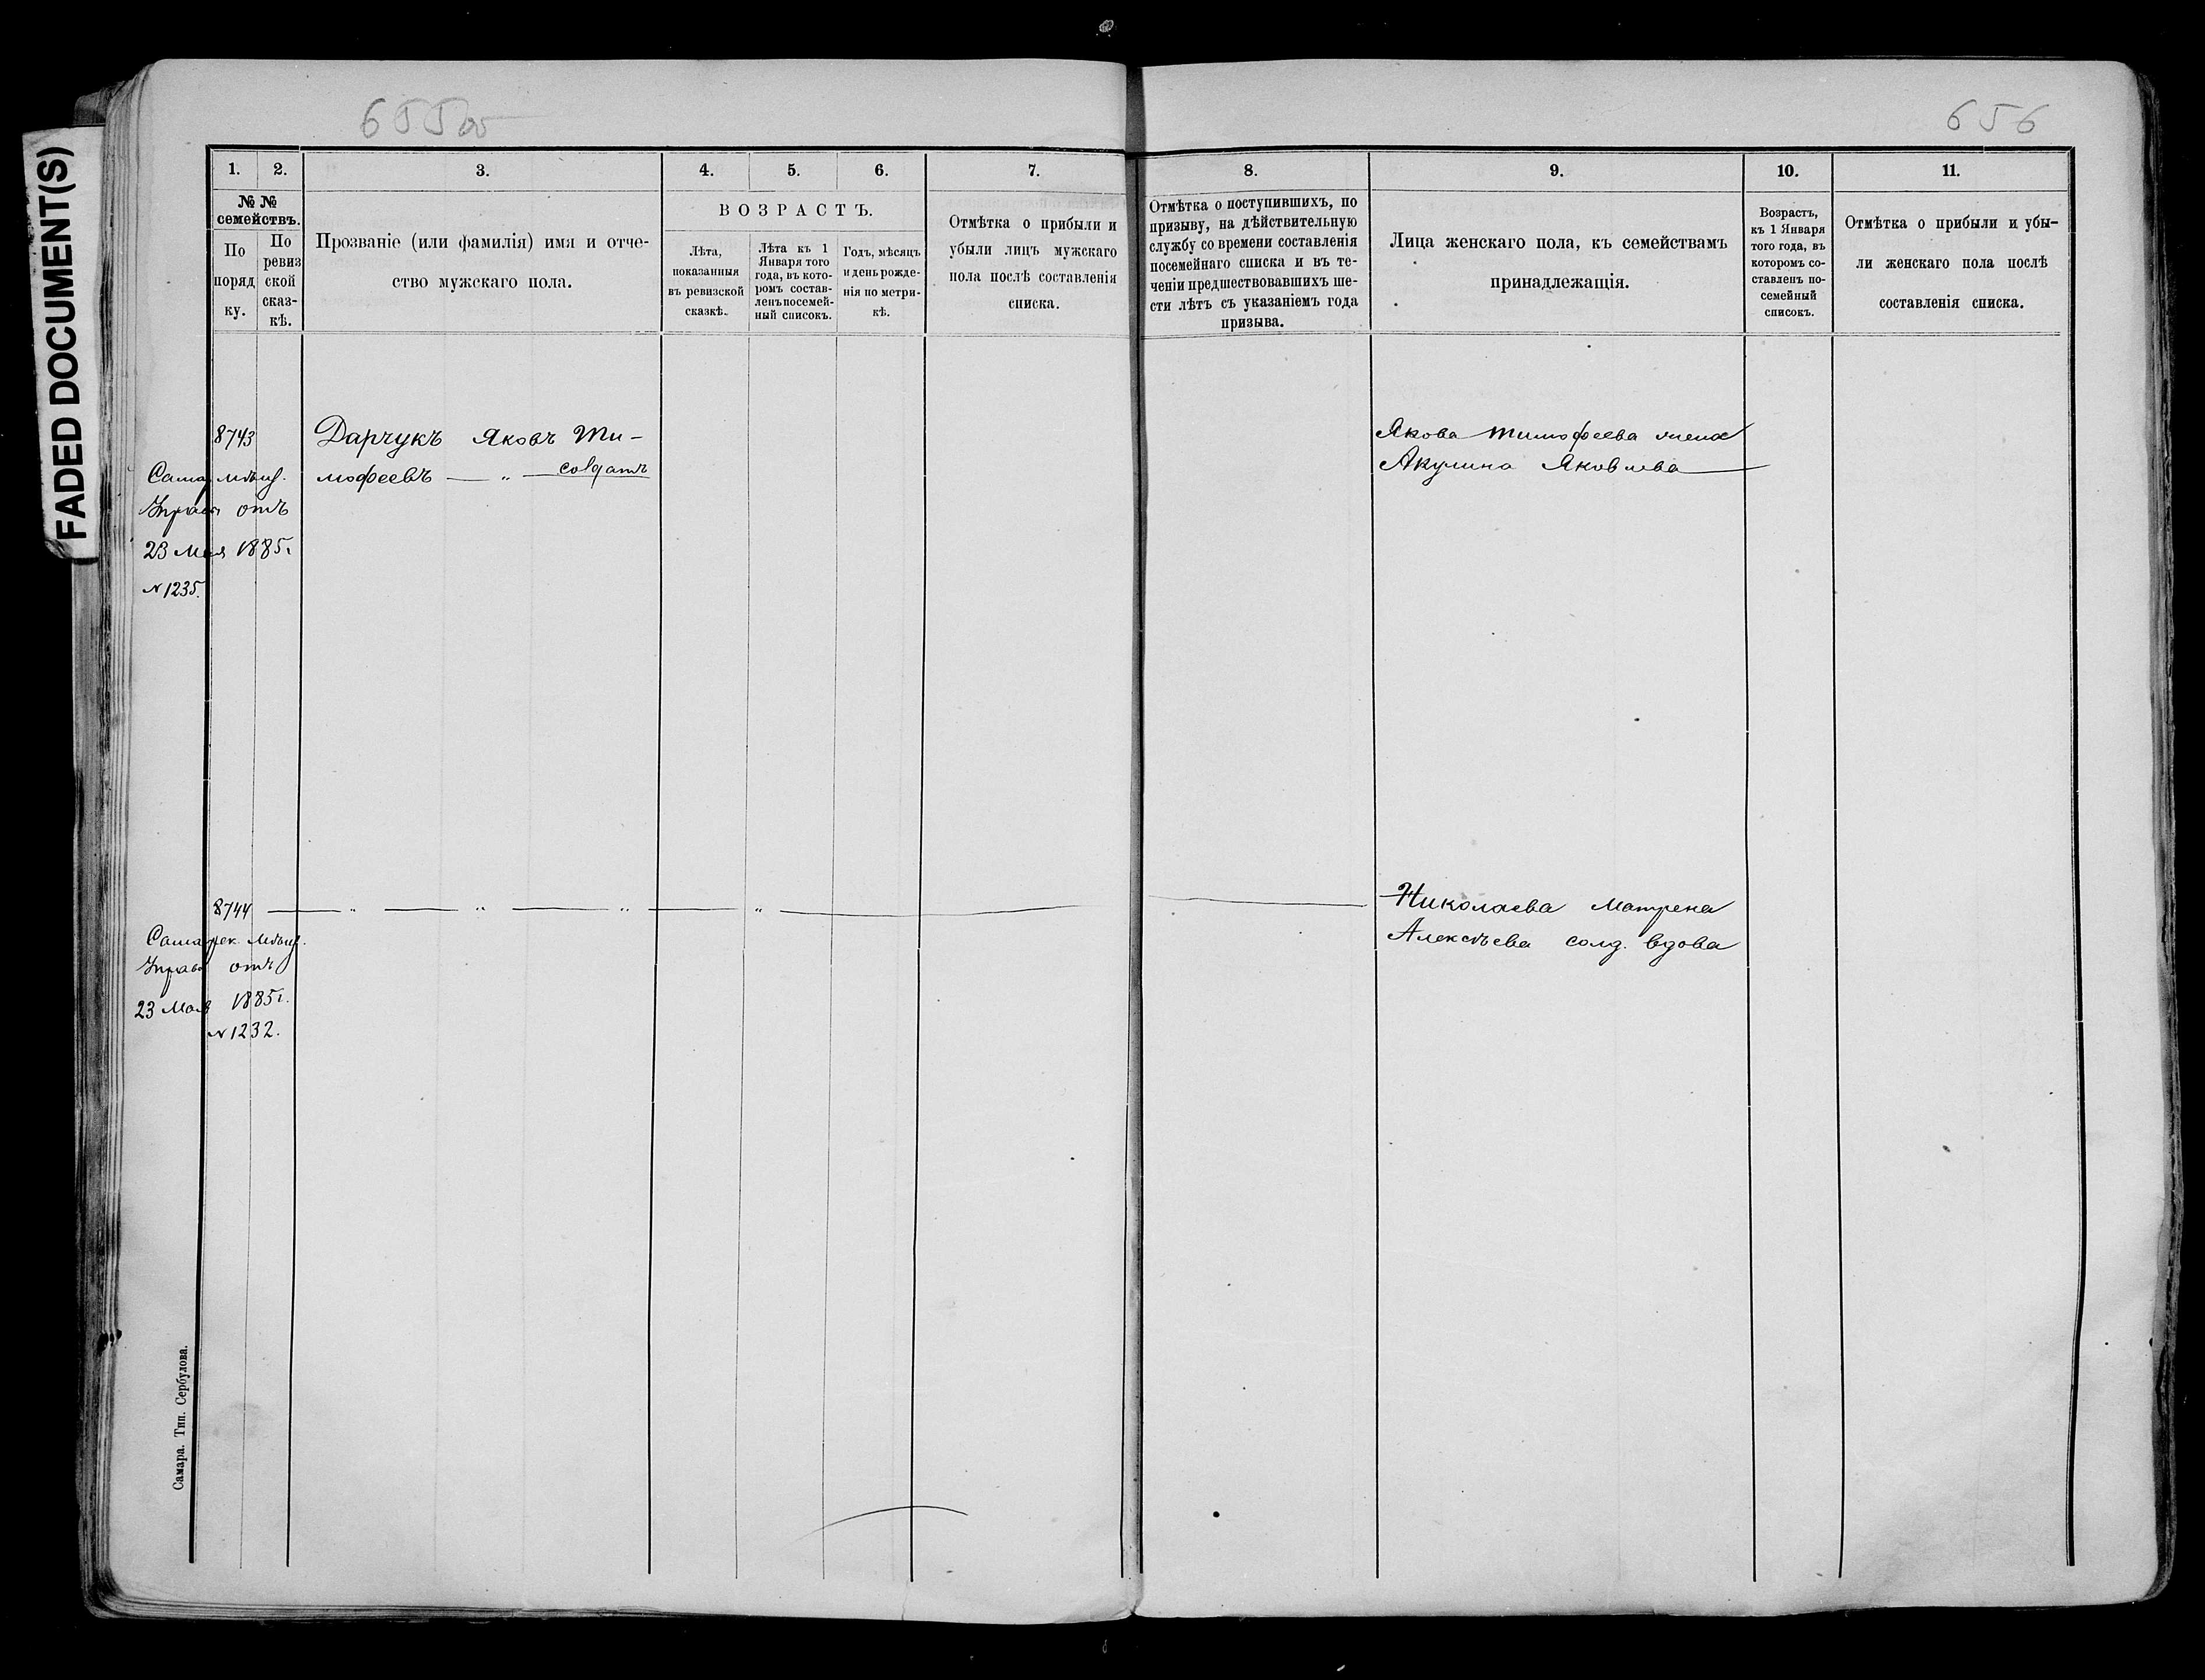 FADED DOCUMENT(S)
655об
656
1. 2. 3. 4. 5. 6. 7.
№ №
семействъ.
По
поряд
ку.
По
ревиз
ской
сказ-
кѣ.
Прозваніе (или фамилія) имя и отче-
ство мужскаго пола.
ВОЗРАСТЪ.
Лѣта,
показанныя
въ ревизской
сказкѣ.
Лѣта къ 1
Января того
года, въ кото-
ромъ состав-
ленъ посемей-
ный списокъ.
Годъ, мѣсяцъ
и день рожде-
нія по метри-
кѣ.
Отмѣтка о прибыли и
убыли лицъ мужскаго
пола послѣ составленія
списка.
8. 9. 10. 11.
Отмѣтка о поступившихъ, по
призыву, на дѣйствительную
службу со времени составленія
посемейнаго списка и въ те-
ченіи предшествовавшихъ ше-
сти лѣтъ съ указаніемъ года
призыва.
Лица женскаго пола, къ семействамъ
принадлежащія.
Возрастъ,
къ 1 Января
того года, въ
которомъ со-
ставленъ по-
семейный
списокъ.
Отмѣтка о прибыли и убы-
ли женскаго пола послѣ
составленія списка.
8743 Дарчукъ Яковъ Ти-
мофеевъ — „ — солдатъ
Самар мѣщ.
Управы отъ
23 Мая 1885г.
№ 1235.
Якова Тимофеева жена
Акулина Яковлева
8744 — „ — „ — „ — „ —
Самарск. Мѣщ.
Управы отъ
23 Мая 1885г.
№ 1232.
Николаева Матрена
Алексѣева солд. вдова
Самара. Тип. Сербулова.